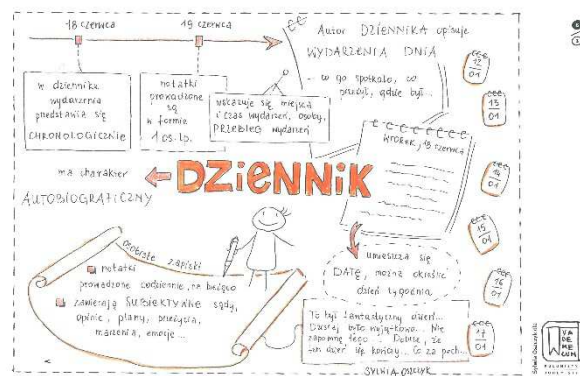 18 czerwca
19 czerwca
w dzienniku
wydarzenia
przedstawia się
CHRONOLOGICZNIE
notatki
prowadzone
są
w formie
1 os. lp.
wskazuje się miejsca
i czas wydarzeń, osoby,
PRZEBIEG wydarzeń
Autor DZIENNIKA opisuje
WYDARZENIA DNIA
co go spotkało, co
przeżył, gdzie był...
WTOREK, 19 czerwca
12
01
13
01
14
01
15
01
16
01
17
01
ma charakter
AUTOBIOGRAFICZNY
DZIENNIK
osobiste zapiski
notatki
prowadzone codziennie, na bieżąco
zawierają SUBIEKTYWNE sądy,
opinie, plany, przeżycia,
marzenia, emocje...
umieszcza się
DATĘ, można określić
dzień tygodnia
To był fantastyczny dzień...
Dzisiaj było wyjątkowo... Nie
zapomnę tego... Dobrze, że
ten dzień się kończy... Co za pech...
SYLWIA OSZCZYK
Sylwia Oszczyk
VA
DE
ME
CUM